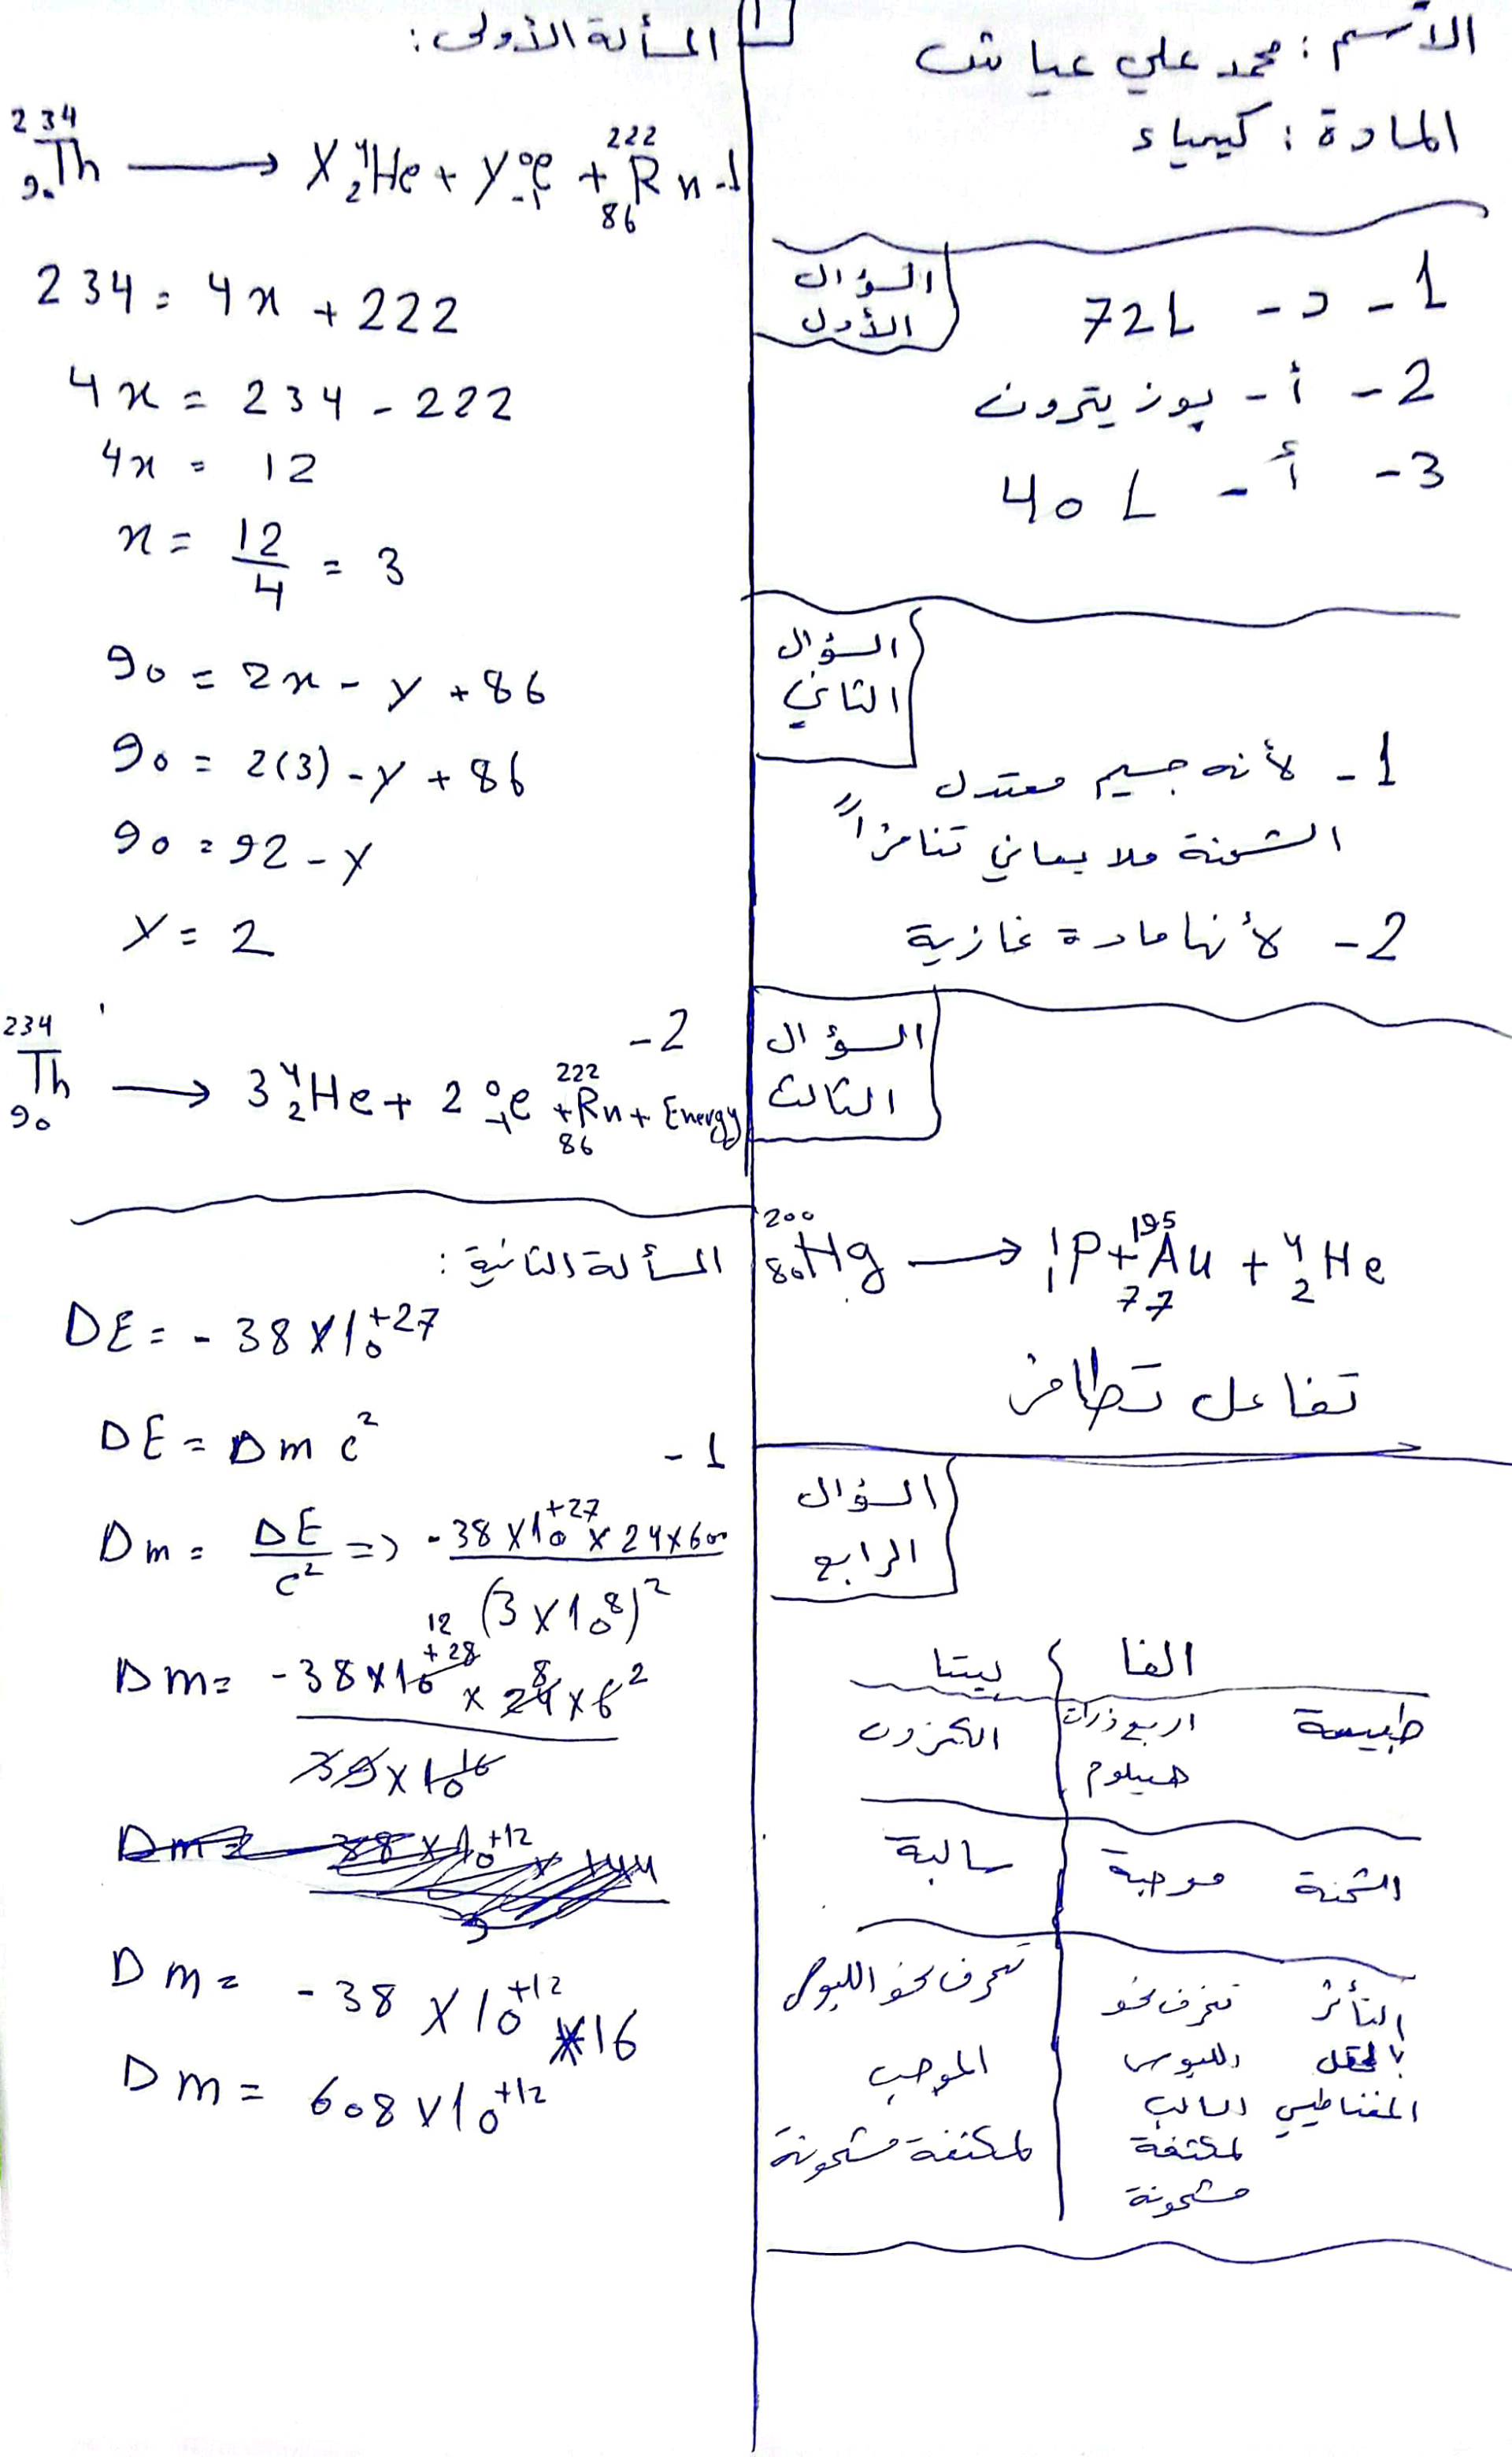 الأسم : محمد علي عياش
المادة : كيمياء
السؤال الأول
1 - د - 72L
2 - أ - بوزيترون
3 - أ - 40 L
السؤال الثاني
1 - لأنه جسيم معتدل
الشحنة فلا يعاني تنافراً
2 - لأنها مادة غازية
السؤال الثالث
²⁰⁰₈₀Hg → ¹₁P + ¹⁹⁵₇₇Au + ⁴₂He
تفاعل تطافر
السؤال الرابع
الفا بيتا
طبيعة اربع ذرات الكترون
هيليوم
الشحنة موجبة سالبة
التأثر تنحرف نحو تنحرف نحو اللبوس
بالحقل اللبوس الموجب
المغناطيسي السالب لمكثفة مشحونة
لمكثفة
مشحونة
1
المسألة الأولى :
1- ²³⁴₉₀Th → X ⁴₂He + Y ⁰₋₁e + ²²²₈₆Rn
234 = 4x + 222
4x = 234 - 222
4x = 12
x = 12/4 = 3
90 = 2x - y + 86
90 = 2(3) - y + 86
90 = 92 - y
y = 2
2-
²³⁴₉₀Th → 3 ⁴₂He + 2 ⁰₋₁e + ²²²₈₆Rn + Energy
المسألة الثانية :
DE = - 38 x 10⁺²⁷
DE = Dm c² 1-
Dm = DE/c² => - 38 x 10⁺²⁷ x 24 x 600 / (3 x 10⁸)²
Dm = - 38 x 10⁺²⁸ x 24 x 6² / 10¹⁶
12 8
Dm = - 38 x 10⁺¹² x 16
Dm = 608 x 10⁺¹²